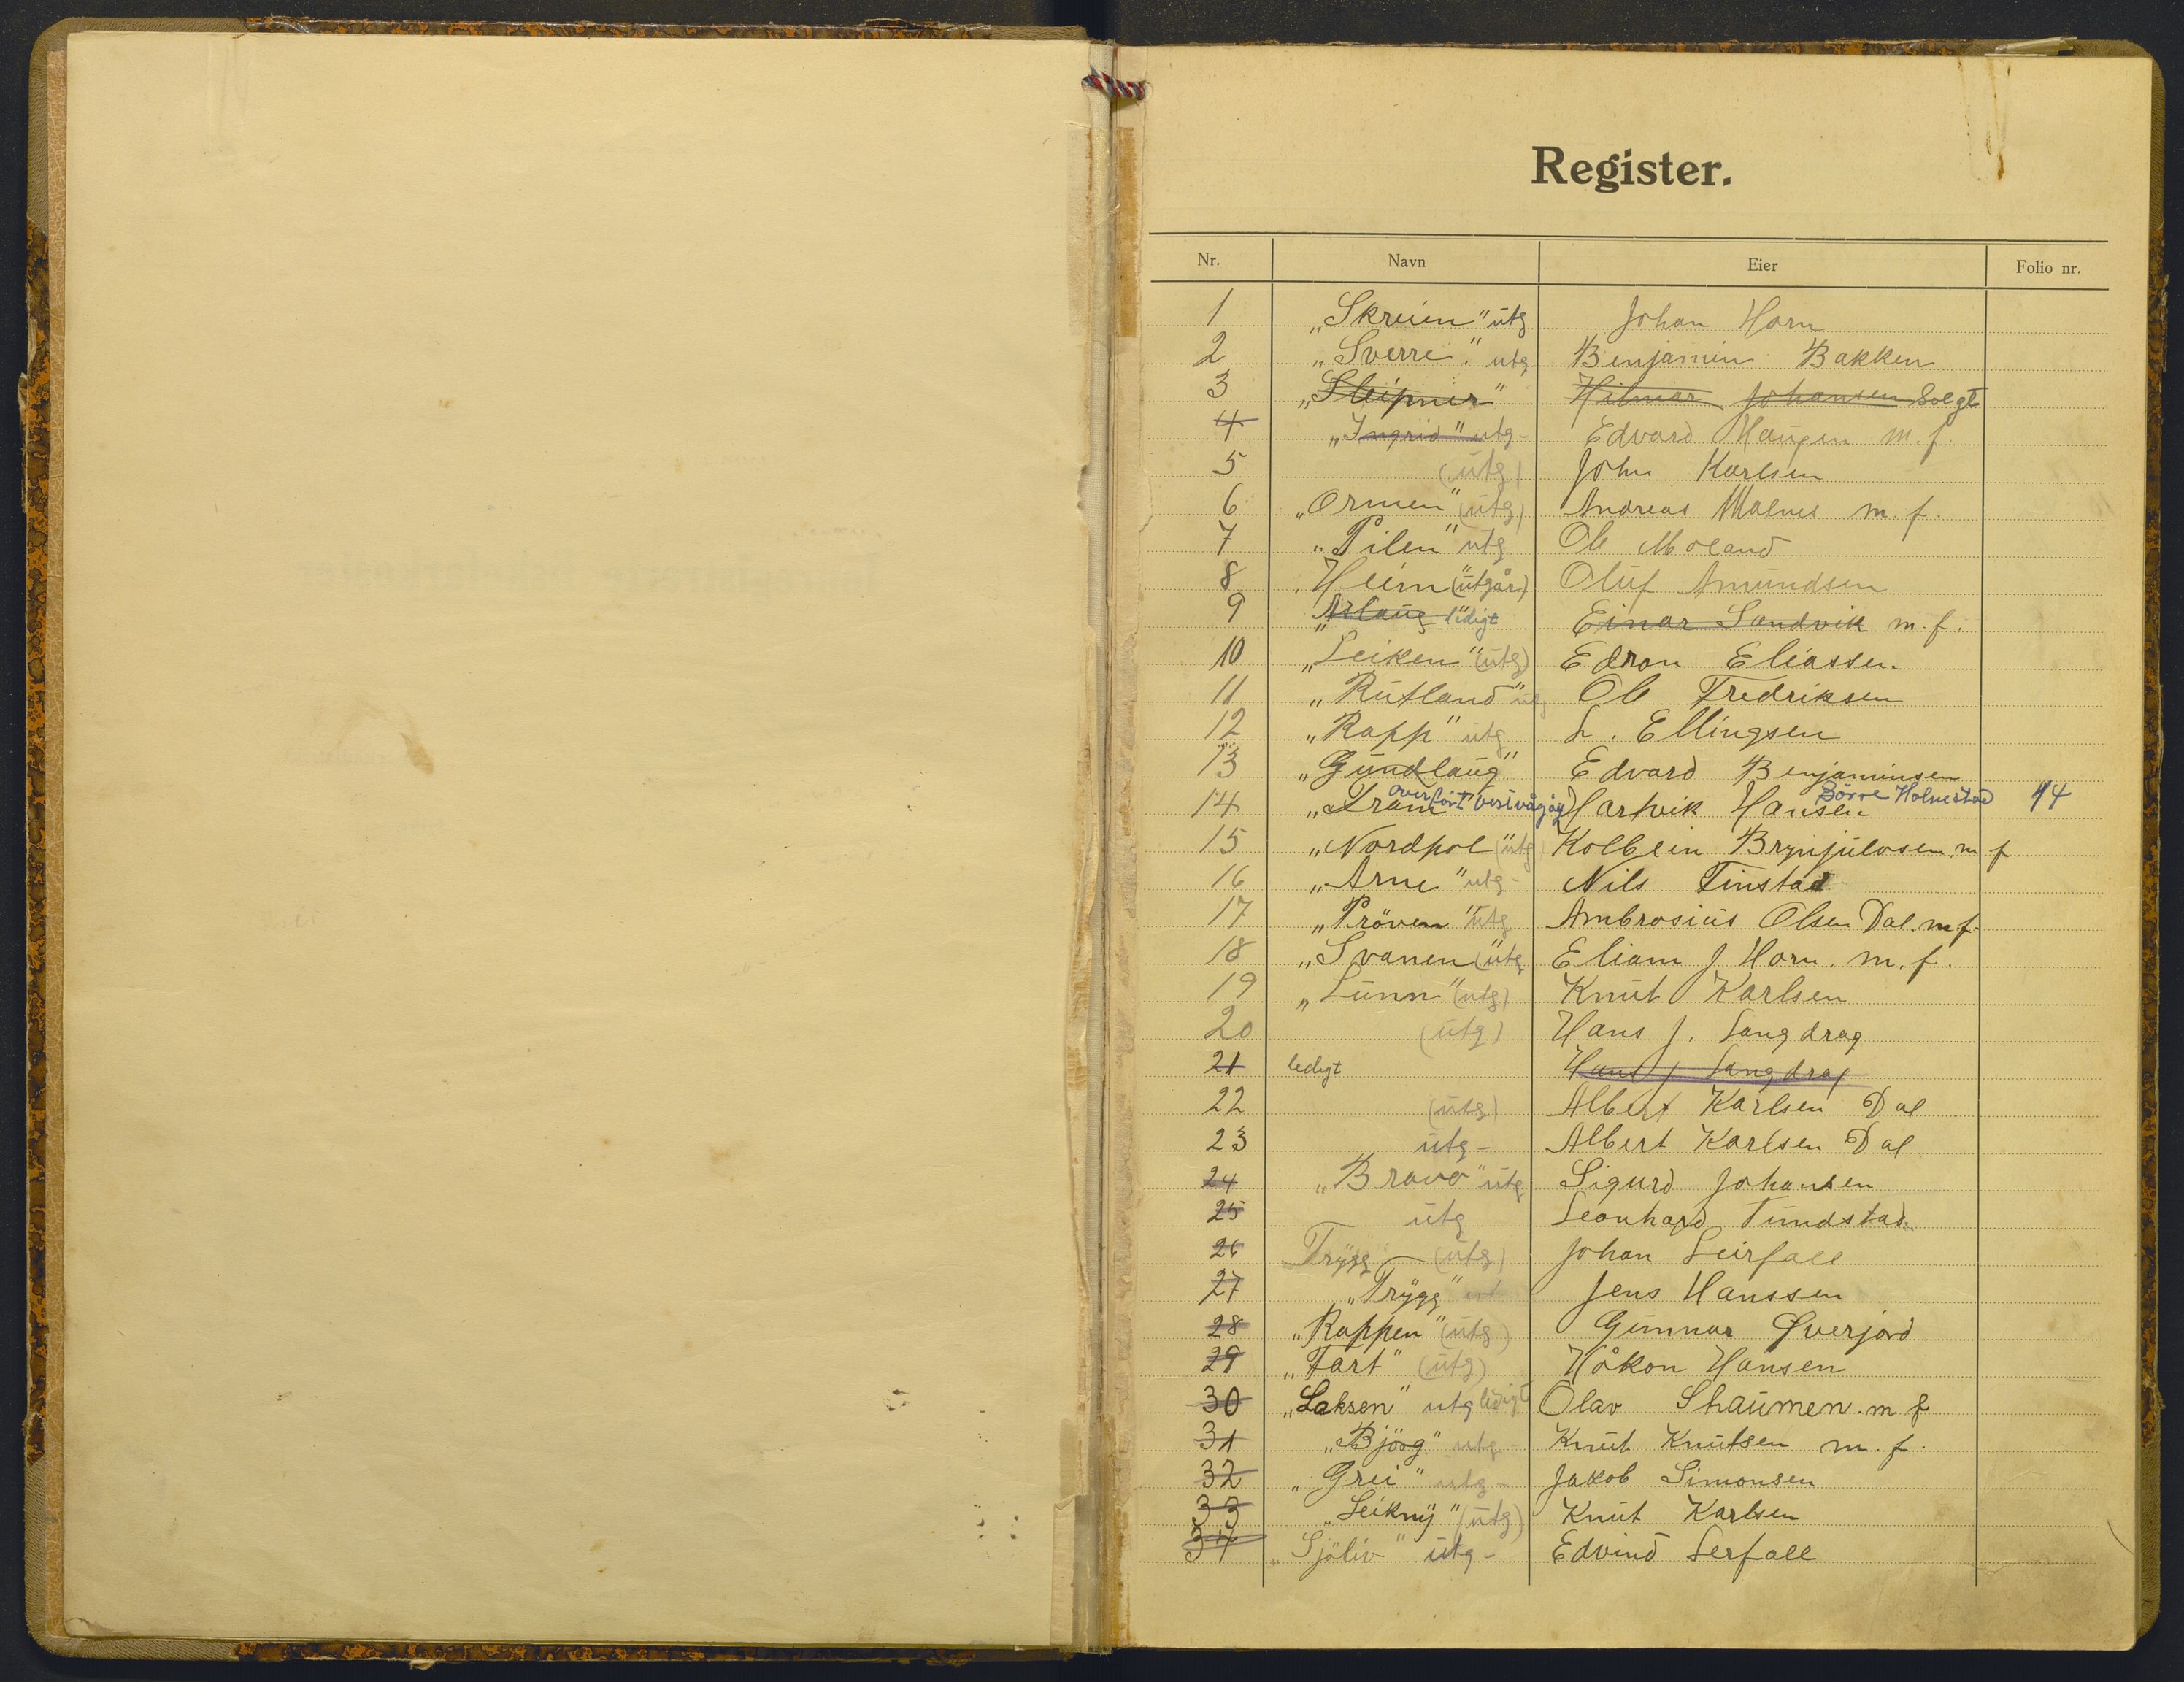 Register.
Nr. Navn Eier Folio nr.
1 „Skreien" utg Johan Horn
2 „Sverre". utg Benjamin Bakken
3 „Sleipner" Hilmar Johansen Solgt
4 „Ingrid" utg- Edvard Haugen m.f.
5 (utg) John Karlsen
6 „Ormen" (utg) Andreas Malnes m.f.
7 „Pilen" utg Ole Moland
8 „Heim" (utgår) Oluf Amundsen
9 „Aslaug ledigt Einar Sandvik m.f.
10 „Leiken" (utg) Edron Eliassen.
11 „Rutland" utg Ole Fredriksen
12 „Rapp" utg L. Ellingsen
13 „Gundlaug" Edvard Benjaminsen
14 „Fram" overført Vestvågøy Hartvik Hansen Börre Holmestad 14
15 „Nordpol" (utg Kolbein Brynjulvsen m f
16 „Arne" utg- Nils Tinstad
17 „Pröven" utg Ambrosius Olsen Dal. m.f.
18 „Svanen" (utg Eliam J Horn. m.f.
19 „Lunn" (utg) Knut Karlsen
20 (utg) Hans J. Langdrag
21 ledigt Hans J Langdrag
22 (utg) Albert Karlsen Dal
23 utg- Albert Karlsen Dal
24 „Bravo" utg Sigurd Johansen
25 utg Leonhard Tundstad
26 Trygg (utg) Johan Leirfall
27 „Trygg" ut Jens Hanssen
28 „Rappen" (utg) Gunnar Øverjord
29 „Fart" (utg) Håkon Hansen
30 „Laksen" utg ledigt Olav Shaumen. m f
31 „Bjørg" utg- Knut Knutsen m.f.
32 „Grei" utg- Jakob Simonsen
33 „Leikny" (utg) Knut Karlsen
34 „Sjöliv" utg- Edvind Lerfall